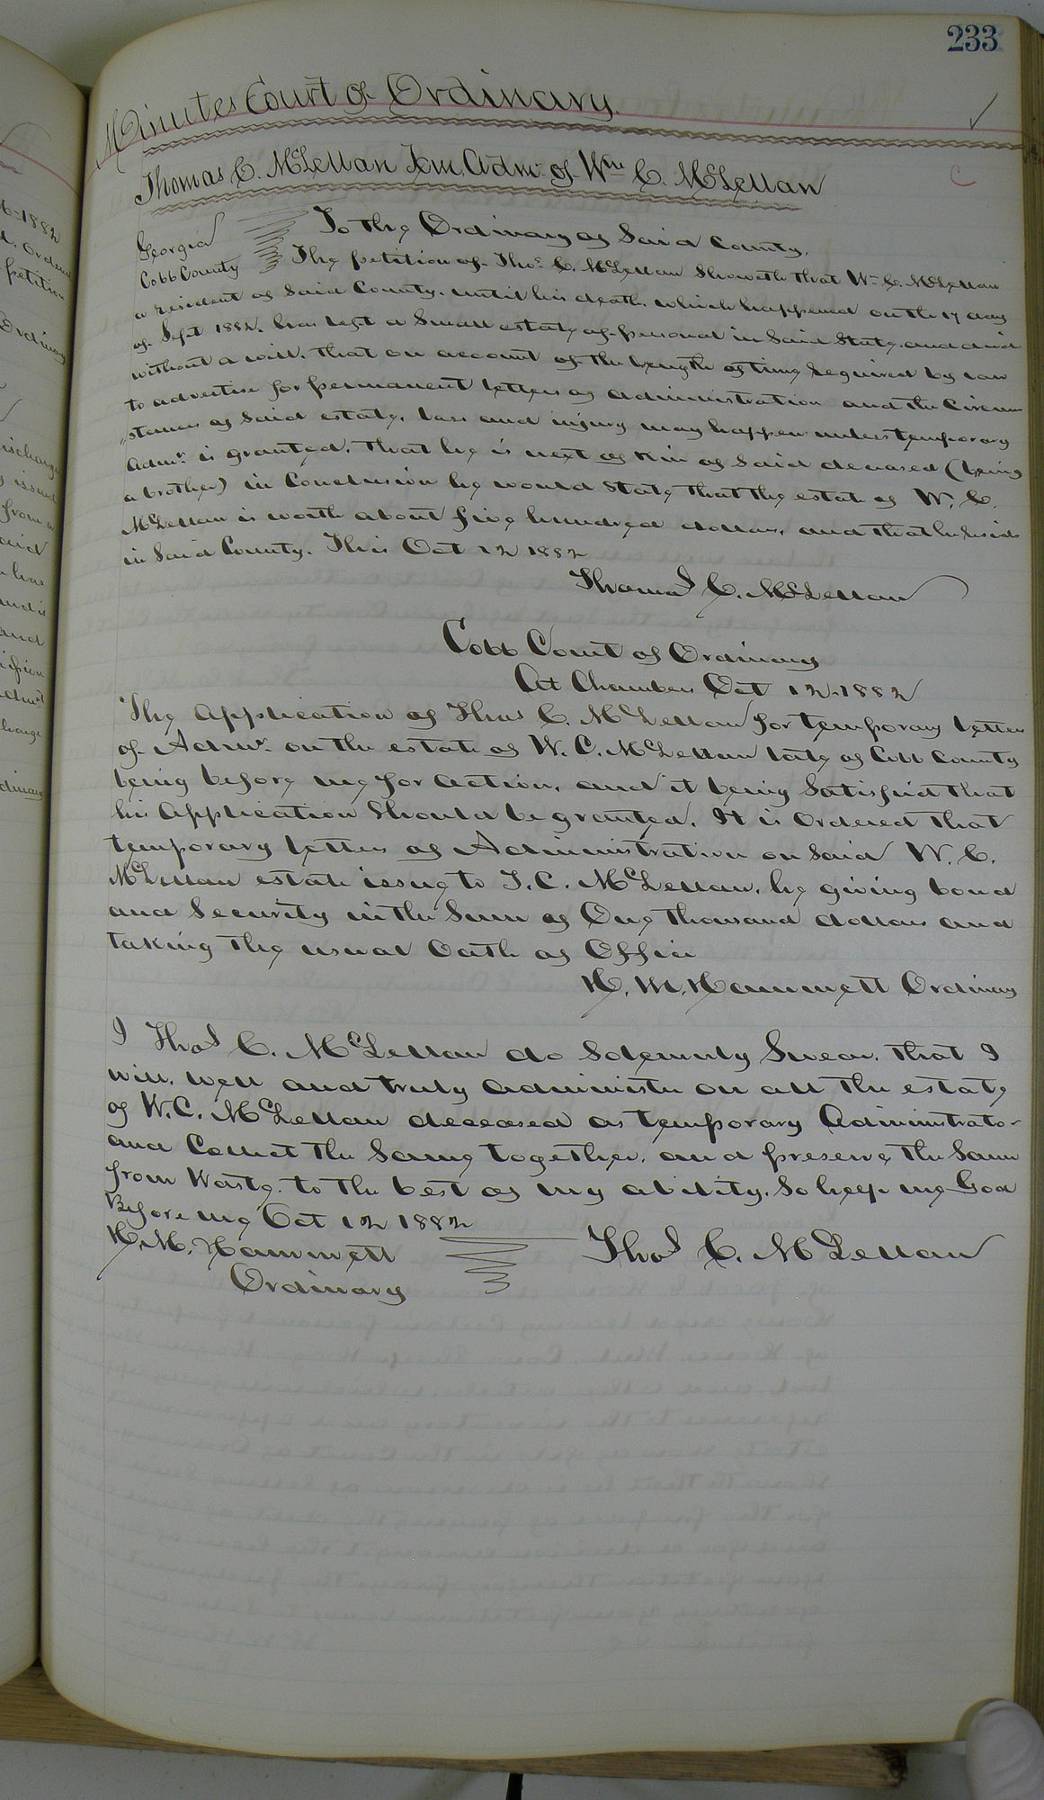 233
Minutes Court of Ordinary.
Thomas C. McLellan Tem. Admr. of Wm C. McLellan
Georgia
Cobb County
To the Ordinary of Said County.
The petition of Thos C. McLellan Showeth that Wm C. McLellan
a resident of Said County. until his death, which happened on the 17 day
of Sept 1882. has left a Small estate of personal in Said State, and died
without a will, that on account of the length of time required by law
to advertise for permanent letters of administration and the Circum
stances of Said estate, loss and injury may happen unless temporary
Admr. is granted. That he is next of kin of Said deceased (being
a brother) in Conclusion he would State that the estat of W. C.
McLellan is worth about five hundred dollars, and that he resides
in Said County. This Oct 12 1882
Thomas C. McLellan
Cobb Court of Ordinary
At Chambers Oct 12. 1882
The Application of Thos C. McLellan for temporary letters
of Admr. on the estate of W. C. McLellan late of Cobb County
being before me for action, and it being Satisfied that
his Application Should be granted. It is Ordered that
temporary letters of Administration on Said W. C.
McLellan estate issue to T. C. McLellan, he giving bond
and Security in the Sum of One thousand dollars and
taking the usual Oath of Office
H. M. Hammett Ordinary
I Thos C. McLellan do Solemnly Swear, that I
will, well and truly administer on all the estate
of W. C. McLellan deceased as temporary Administrator
and Collect the Same together, and preserve the Same
from Waste, to the best of my ability. So help me God
Before me Oct 12 1882
H. M. Hammett
Ordinary
Thos C. McLellan